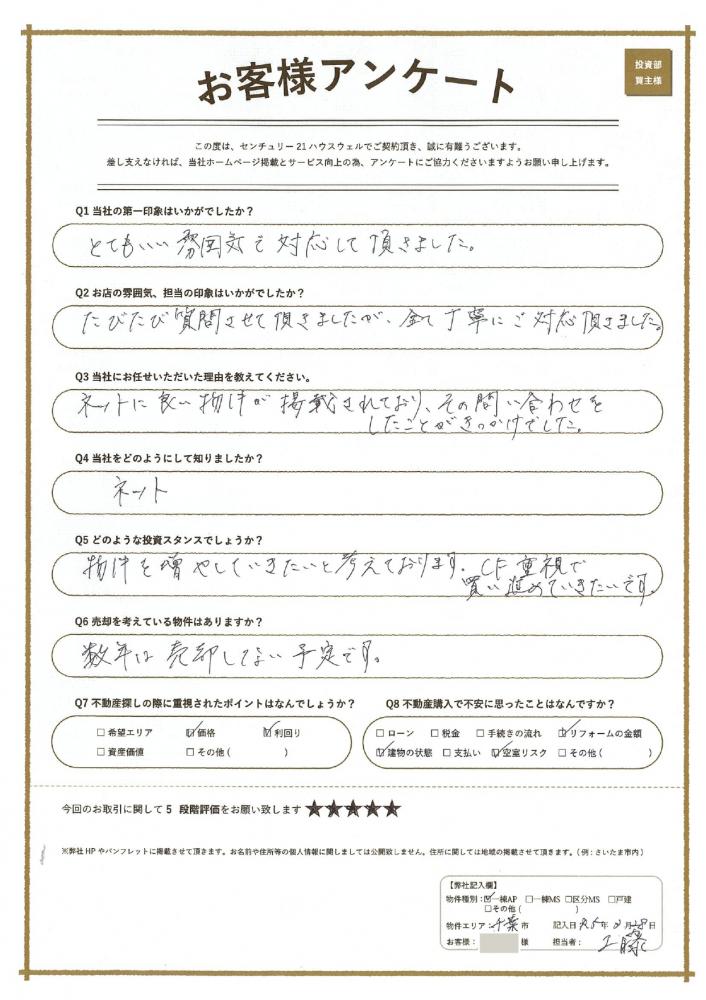 お客様アンケート
投資部
買主様
この度は、センチュリー21ハウスウェルでご契約頂き、誠に有難うございます。
差し支えなければ、当社ホームページ掲載とサービス向上の為、アンケートにご協力くださいますようお願い申し上げます。
Q1 当社の第一印象はいかがでしたか？
とてもいい雰囲気で対応して頂きました。
Q2 お店の雰囲気、担当の印象はいかがでしたか？
たびたび質問させて頂きましたが、全て丁寧にご対応頂きました。
Q3 当社にお任せいただいた理由を教えてください。
ネットに良い物件が掲載されており、その問い合わせを
したことがきっかけでした。
Q4 当社をどのようにして知りましたか？
ネット
Q5 どのような投資スタンスでしょうか？
物件を増やしていきたいと考えております。CF重視で
買い進めていきたいです。
Q6 売却を考えている物件はありますか？
数年は売却してない予定です。
Q7 不動産探しの際に重視されたポイントはなんでしょうか？
□希望エリア ☑価格 ☑利回り
□資産価値 □その他（ ）
Q8 不動産購入で不安に思ったことはなんですか？
□ローン □税金 □手続きの流れ ☑リフォームの金額
☑建物の状態 □支払い ☑空室リスク □その他（ ）
今回のお取引に関して5 段階評価をお願い致します ★★★★★
※弊社HPやパンフレットに掲載させて頂きます。お名前や住所等の個人情報に関しましては公開致しません。住所に関しては地域の掲載させて頂きます。（例：さいたま市内）
【弊社記入欄】
物件種別：☑一棟AP □一棟MS □区分MS □戸建
□その他（ ）
物件エリア：千葉市 記入日 R5年 月28日
お客様： 様 担当者：工藤